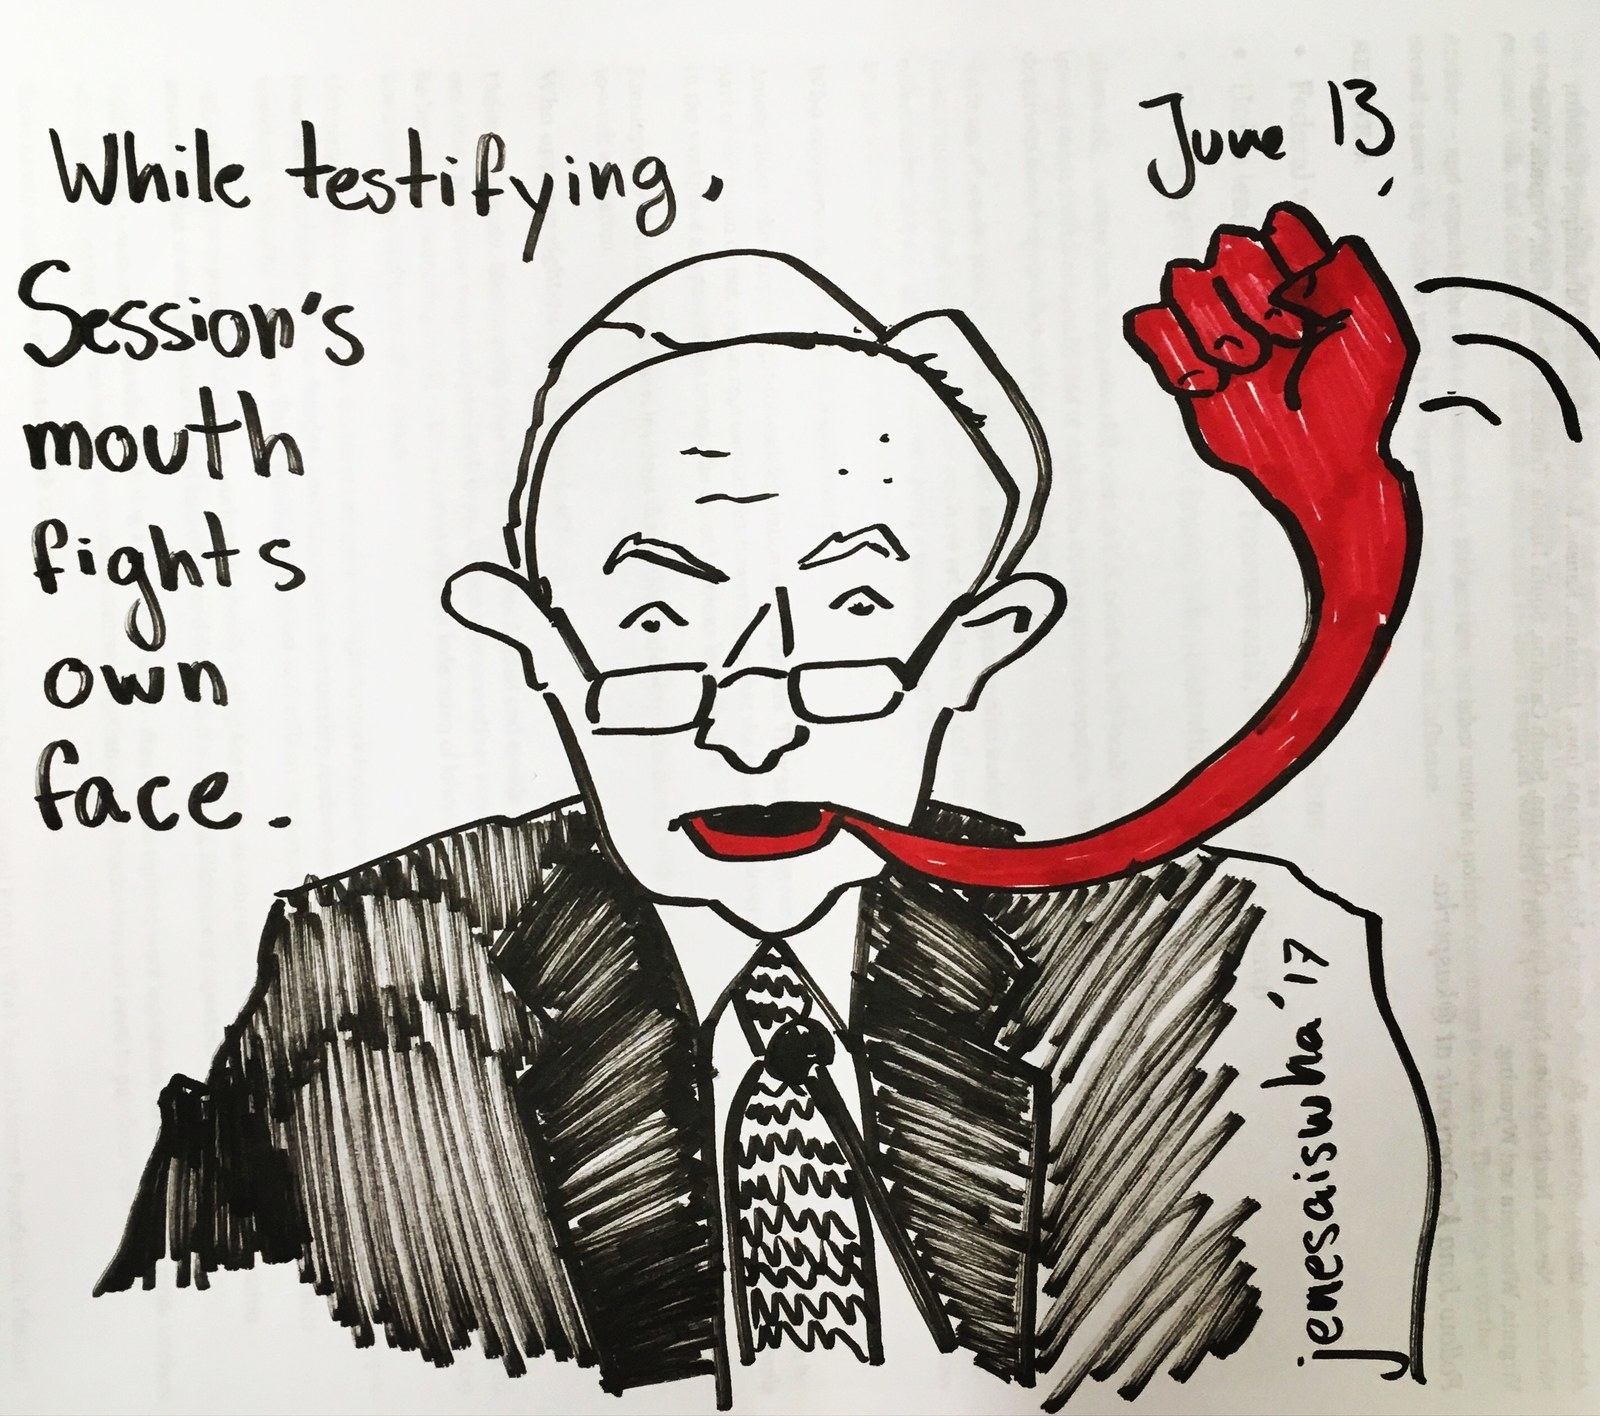 While testifying,
Session's
mouth
fights
own
face.
June 13
jenesaiswha '17